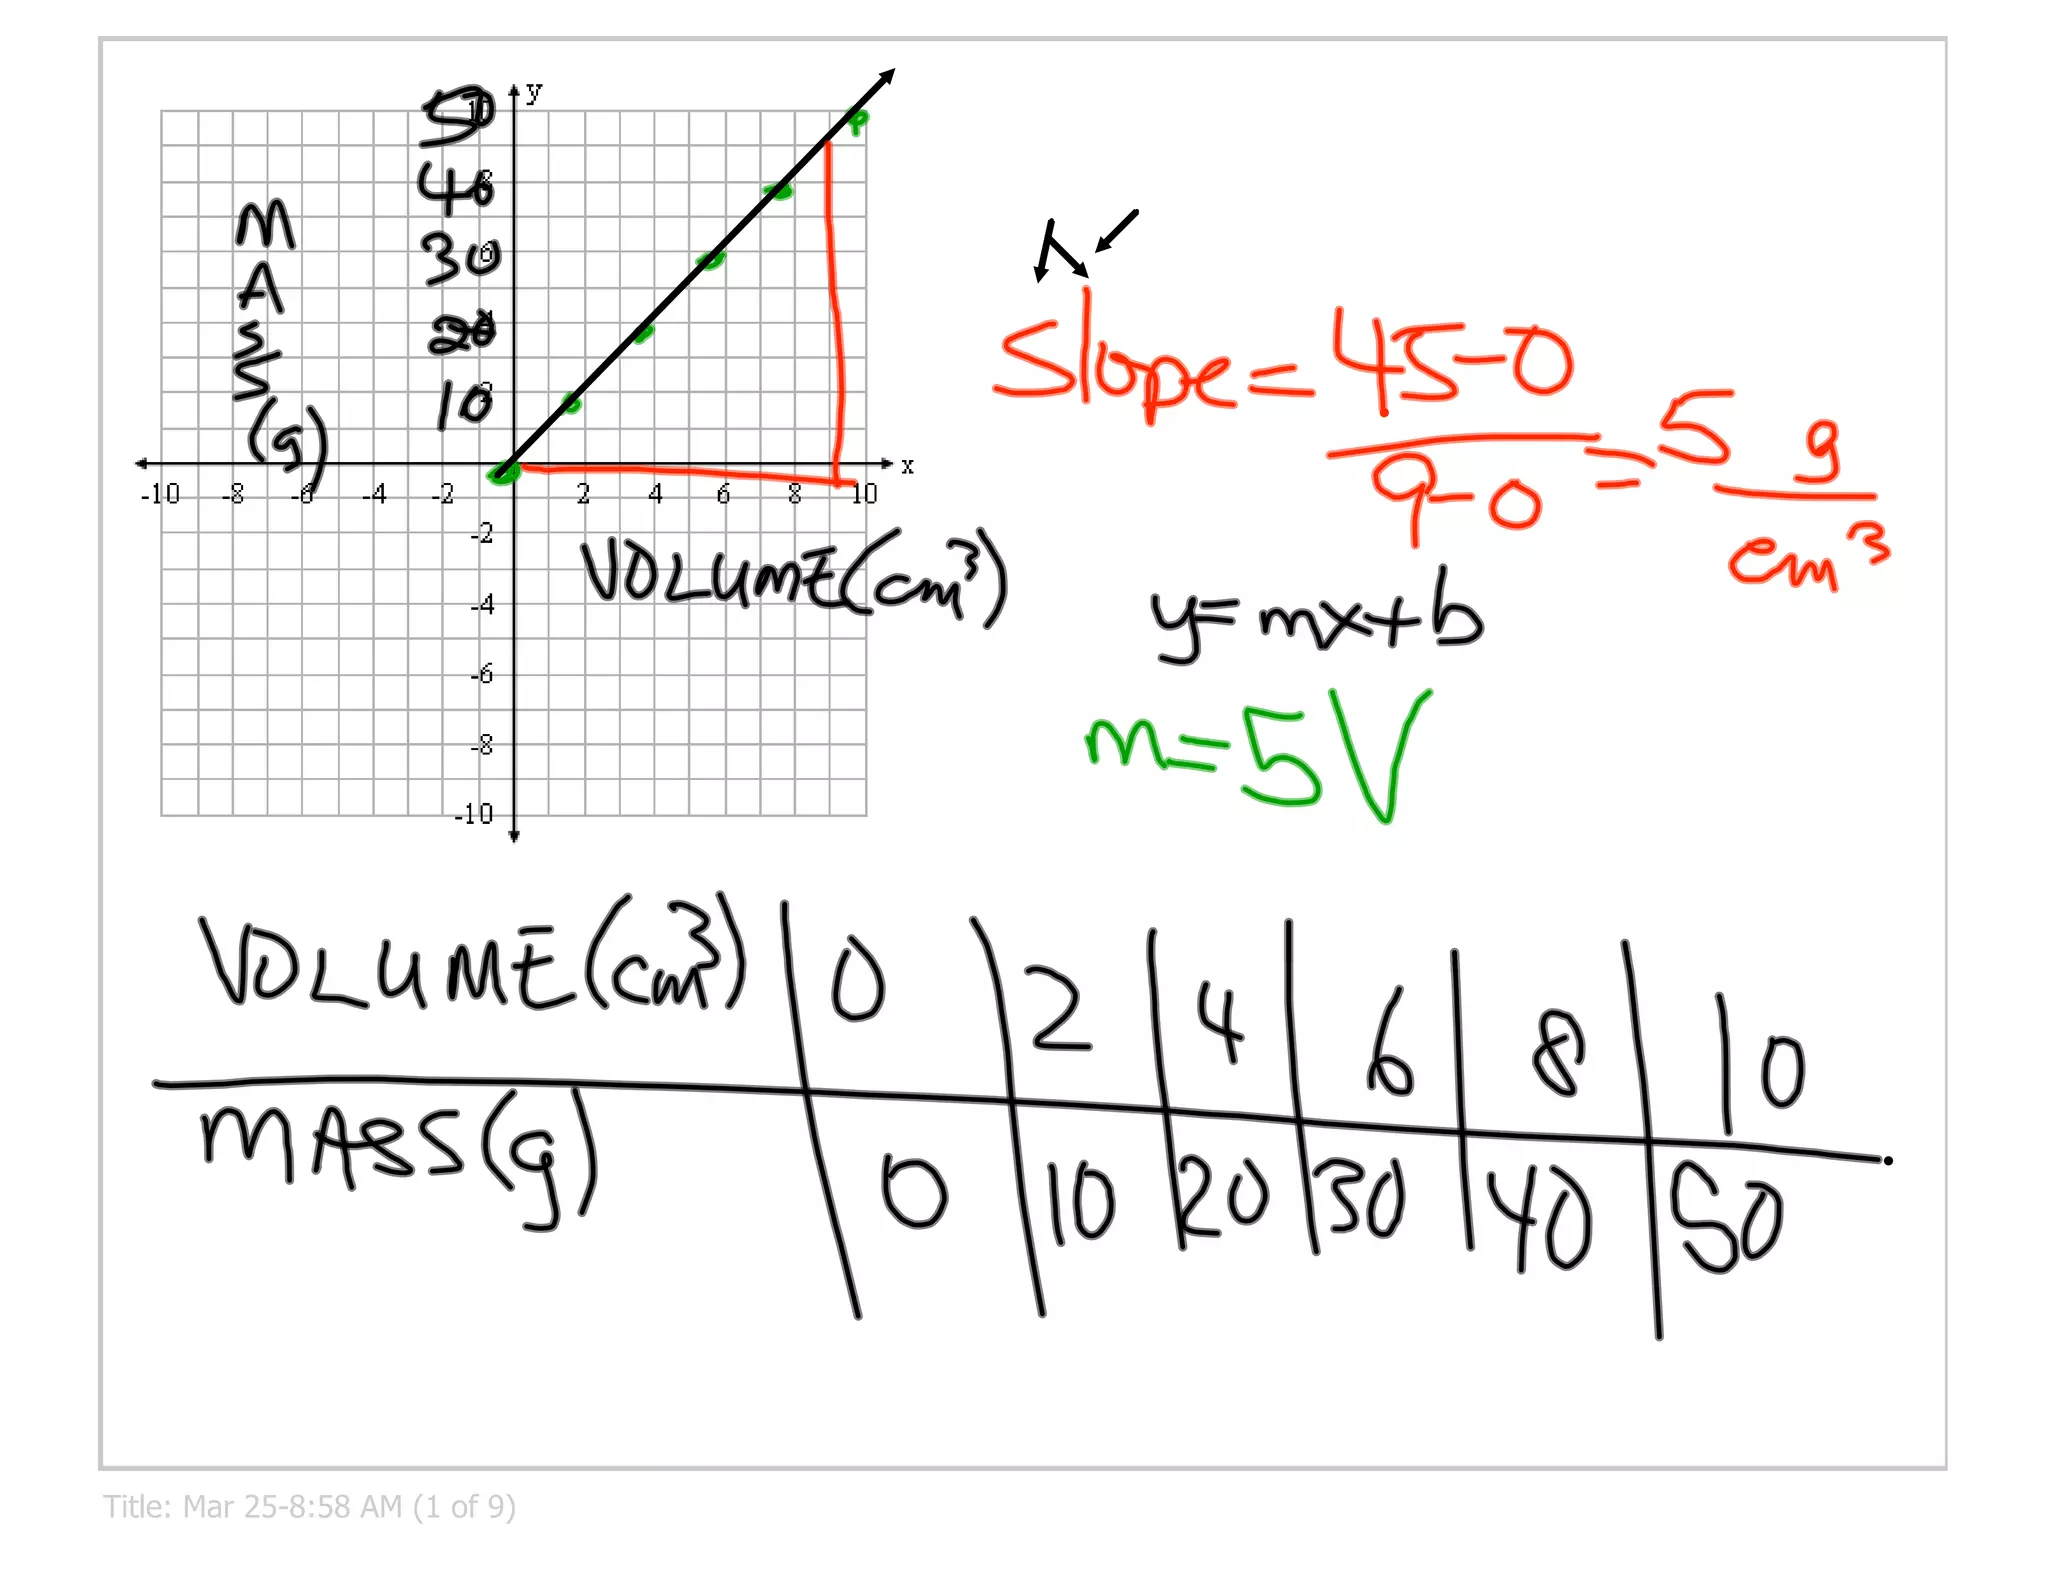 y
50
10
40
8
30
6
20
4
10
2
MASS (g)
x
-10 -8 -6 -4 -2 2 4 6 8 10
-2
-4
-6
-8
-10
VOLUME (cm³)
Slope = 45-0
9-0
= 5 g
cm³
y = mx + b
m = 5V
VOLUME (cm³) 0 2 4 6 8 10
MASS (g) 0 10 20 30 40 50
Title: Mar 25-8:58 AM (1 of 9)